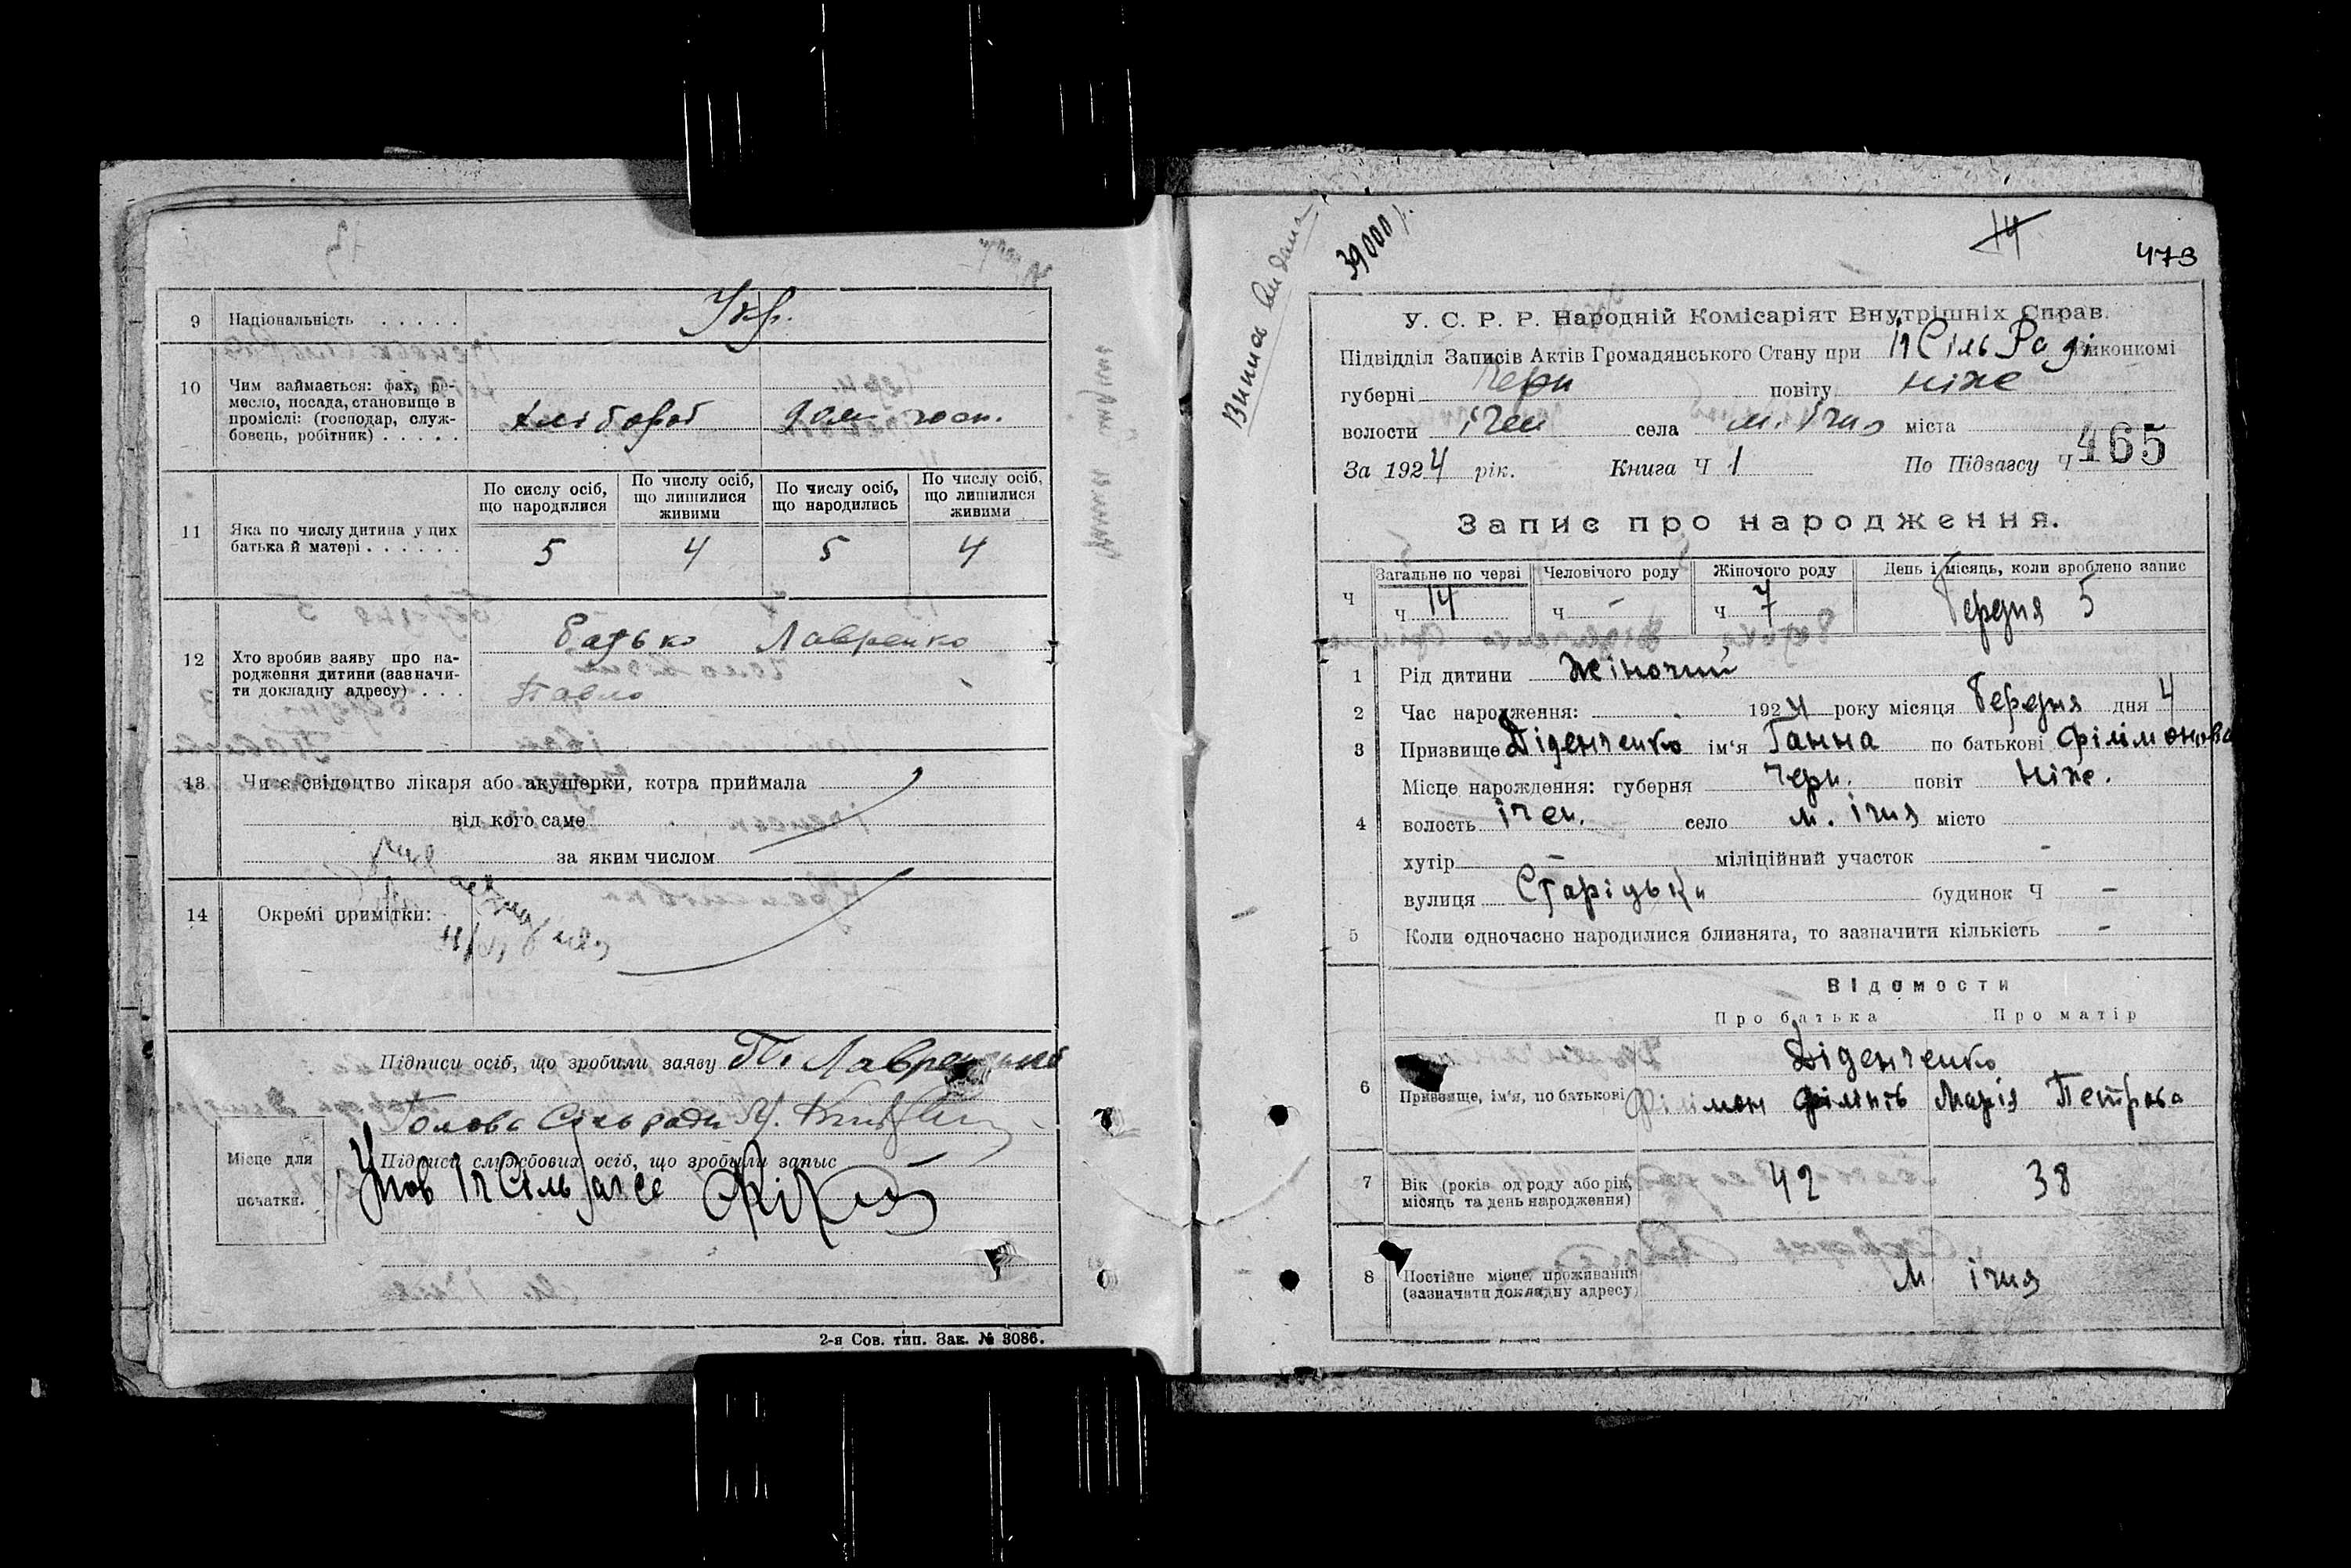 9 Національність . . . . . Укр.
10 Чим займається: фах, ре-
месло, посада, становище в
проміслі: (господар, служ-
бовець, робітник) . . . . . хлібороб дом. госп.
11 Яка по числу дитина у цих
батька й матері . . . . . .
По сислу осіб,
що народилися
По числу осіб,
що лишилися
живими
По числу осіб,
що народились
По числу осіб,
що лишилися
живими
5 4 5 4
12 Хто зробив заяву про на-
родження дитини (зазначи-
ти докладну адресу) . . .
Батько Лавренко
Павло
13 Чи є свідоцтво лікаря або акушерки, котра приймала
від кого саме
за яким числом
14 Окремі примітки:
Підписи осіб, що зробили заяву П. Лавренко
Голова Сільради
Підписи службових осіб, що зробили запис
Місце для
печатки.
2-я Сов. тип. Зак. № 3086.
Виписи видана
39000
14
473
У. С. Р. Р. Народній Комісаріят Внутрішніх Справ.
Підвідділ Записів Актів Громадянського Стану при Іч СільРаді Виконкомі
губерні Черн повіту Ніже
волости Ічен села м. Ічня міста
За 1924 рік. Книга Ч 1 По Підзагсу Ч 465
Запис про народження.
Ч
Загальне по черзі Человічого роду Жіночого роду День і місяць, коли зроблено запис
Ч 14 Ч – Ч 7 Березня 5
1 Рід дитини Жіночий
2 Час народження: 1924 року місяця Березня дня 4
3 Призвище Діденченко ім'я Ганна по батькові Філімонова
4 Місце народження: губерня Черн. повіт Ніже.
волость Ічен. село м. Ічня місто
хутір – міліційний участок –
вулиця Старіцьки будинок Ч –
5 Коли одночасно народилися близнята, то зазначити кількість –
Відомости
Про батька Про матір
6 Призвище, ім'я, по батькові
Діденченко
Філімон Філіпів Марія Петрова
7 Вік (років од роду або рік,
місяць та день народження)
42 38
8 Постійне місце проживання
(зазначити докладну адресу)
м Ічня